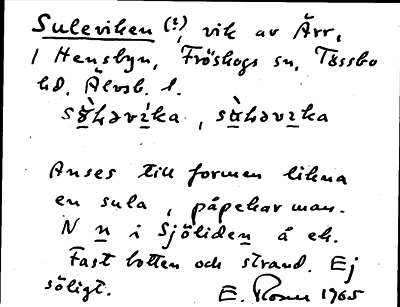 Suleviken (?), vik av Ärr,
i Hensbyn, Fröskogs sn, Tössbo
hd. Älvsb. l.
sùləvi̱ka, sùləvi̱ka
Anses till formen likna
en sula, påpekar man.
N n i Sjöliden å ek.
Fast botten och strand. Ej
söligt. E. Rosén 1965